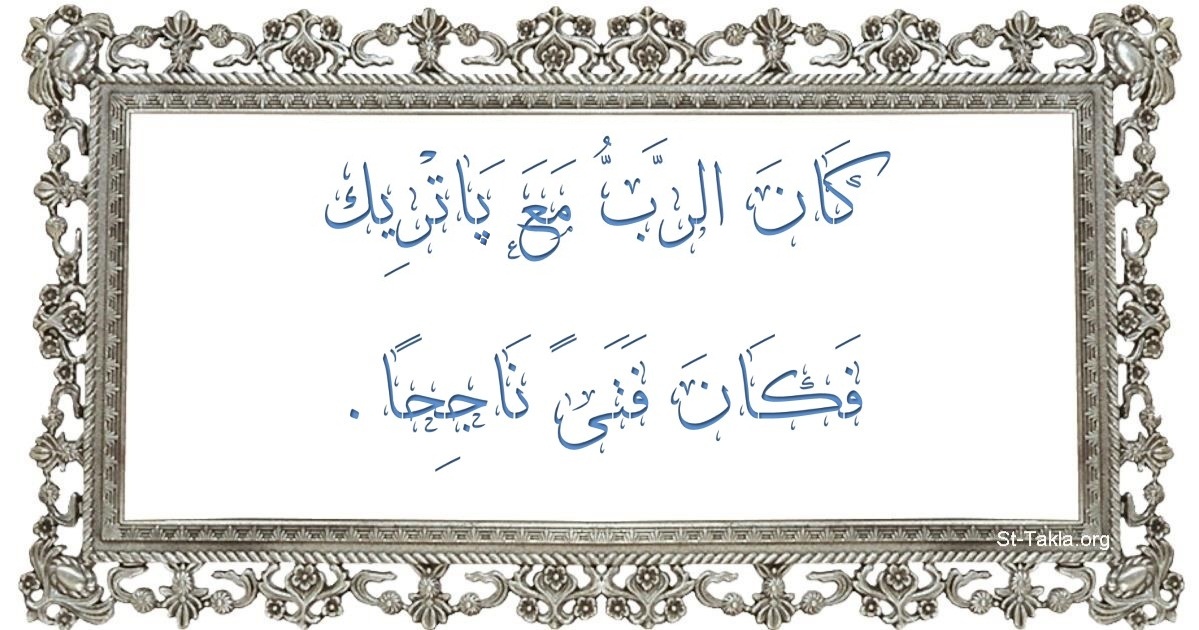 كَانَ الرَّبُّ مَعَ پَاتْرِيك
فَكَانَ فَتَىً نَاجِحًا .
St-Takla.org